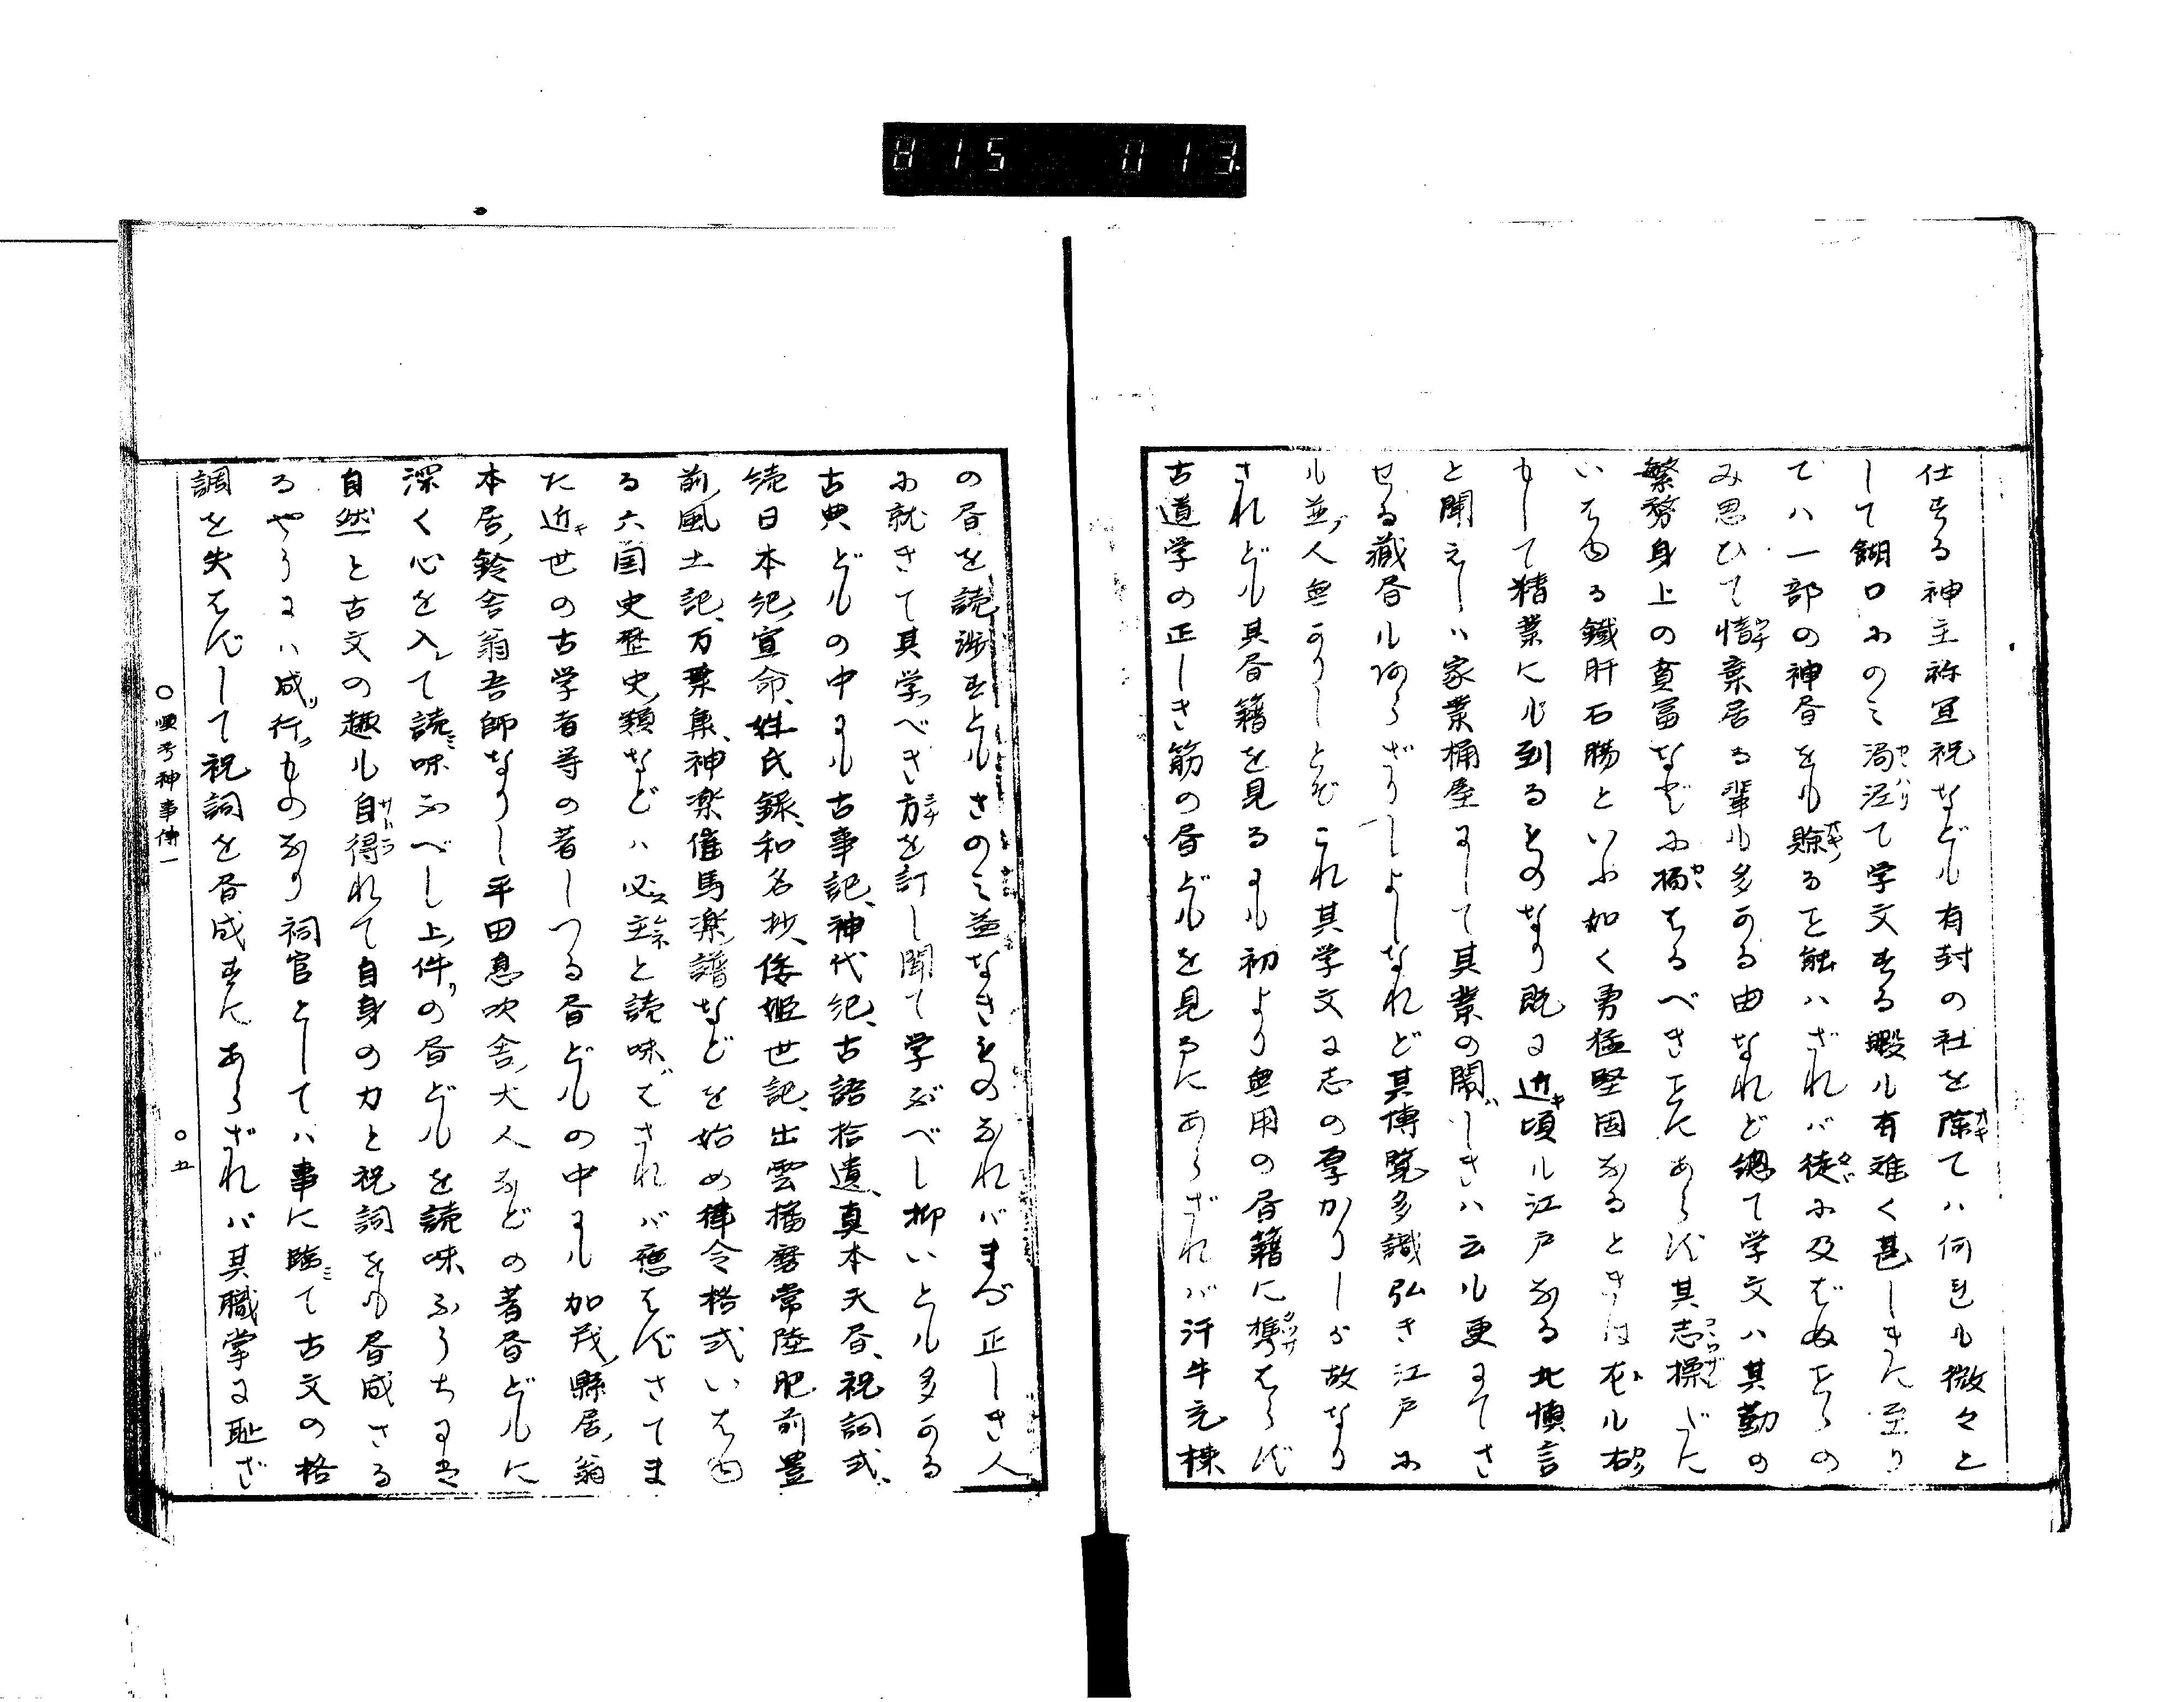 815 013
仕する神主祢宜祝なども有封の社を除てハ何れも微々と
して餬口にのミ渇涇て学文する暇も有難く甚しきに至り
てハ一部の神書をも賖るを能ハざれバ徒に及ばぬことの
み思ひて惰棄居る輩も多かる由なれど總て学文ハ其勤の
繁務身上の貧富などに拘はるべきことにあらず其志操だに
いはゆる鐵肝石腸といふ如く勇猛堅固なるときはおのれ
もして精業にも到るものなり既に近頃も江戸なる北慎言
と聞えしハ家業桶屋にして其業の閙しきハ云も更にてさ
せる蔵書もあらざりしよしなれど其博覧多識弘き江戸に
も並人無かりしとぞこれ其学文に志の厚かりしが故なり
されども其書籍を見るにも初より無用の書籍に携はらず
古道学の正しき筋の書どもを見るにあらざれバ汗牛充棟
の書を読渉すともさのミ益なきものなれバまづ正しき人
に就きて其学べき方を訂し聞て学ぶべし抑いとも多かる
古典どもの中にも古事記、神代紀、古語拾遺、真本天書、祝詞式、
続日本紀宣命、姓氏録、和名抄、倭姫世記、出雲播磨常陸肥前豊
前風土記、万葉集、神楽催馬楽譜などを始め律令格式いはゆ
る六国史歴史類などハ必主と読味ずされバ應はずさてま
た近世の古学者等の著しつる書どもの中にも加茂縣居翁
本居鈴舎翁吾師なりし平田息吹舎大人などの著書どもに
深く心を入て読味ふべし上件の書どもを読味ふうちには
自然と古文の趣も自得れて自身の力と祝詞をも書成さる
るやうにハ成行ものなり祠官としてハ事に臨て古文の格
調を失はずして祝詞を書成すにあらざれバ其職掌に恥ざ
○順考神事傳一
○五